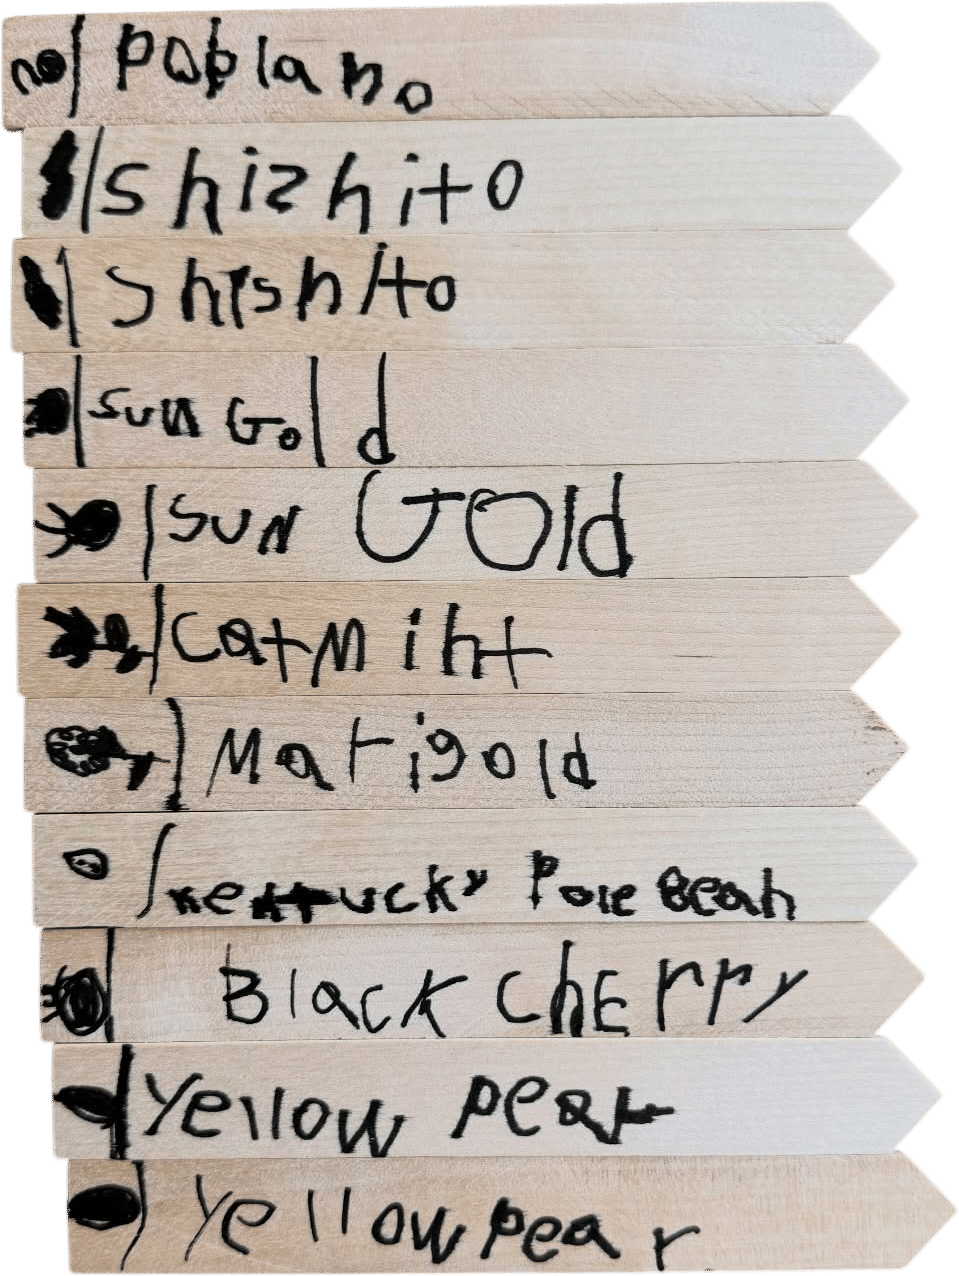 Poblano
Shizhito
Shishito
Sun Gold
Sun Gold
Catmint
Marigold
Kentucky Pole Bean
Black ChErry
Yellow Pear
Yellow pear